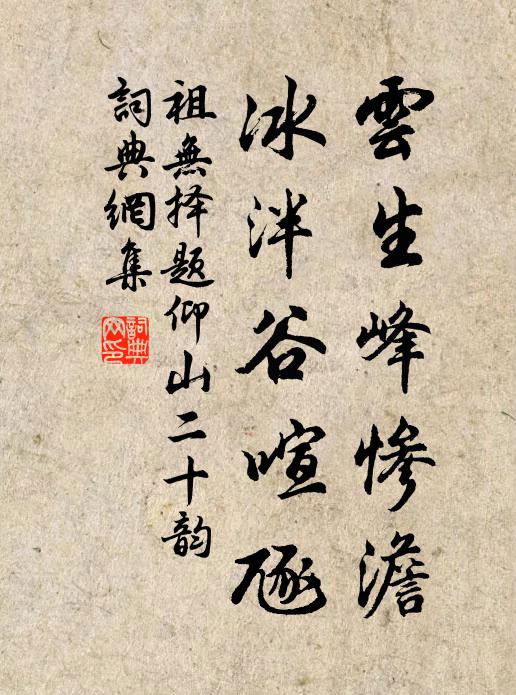 雲生峰惨澹
冰泮谷喧豗
祖無择题仰山二十韵
詞典網集
詞典网印